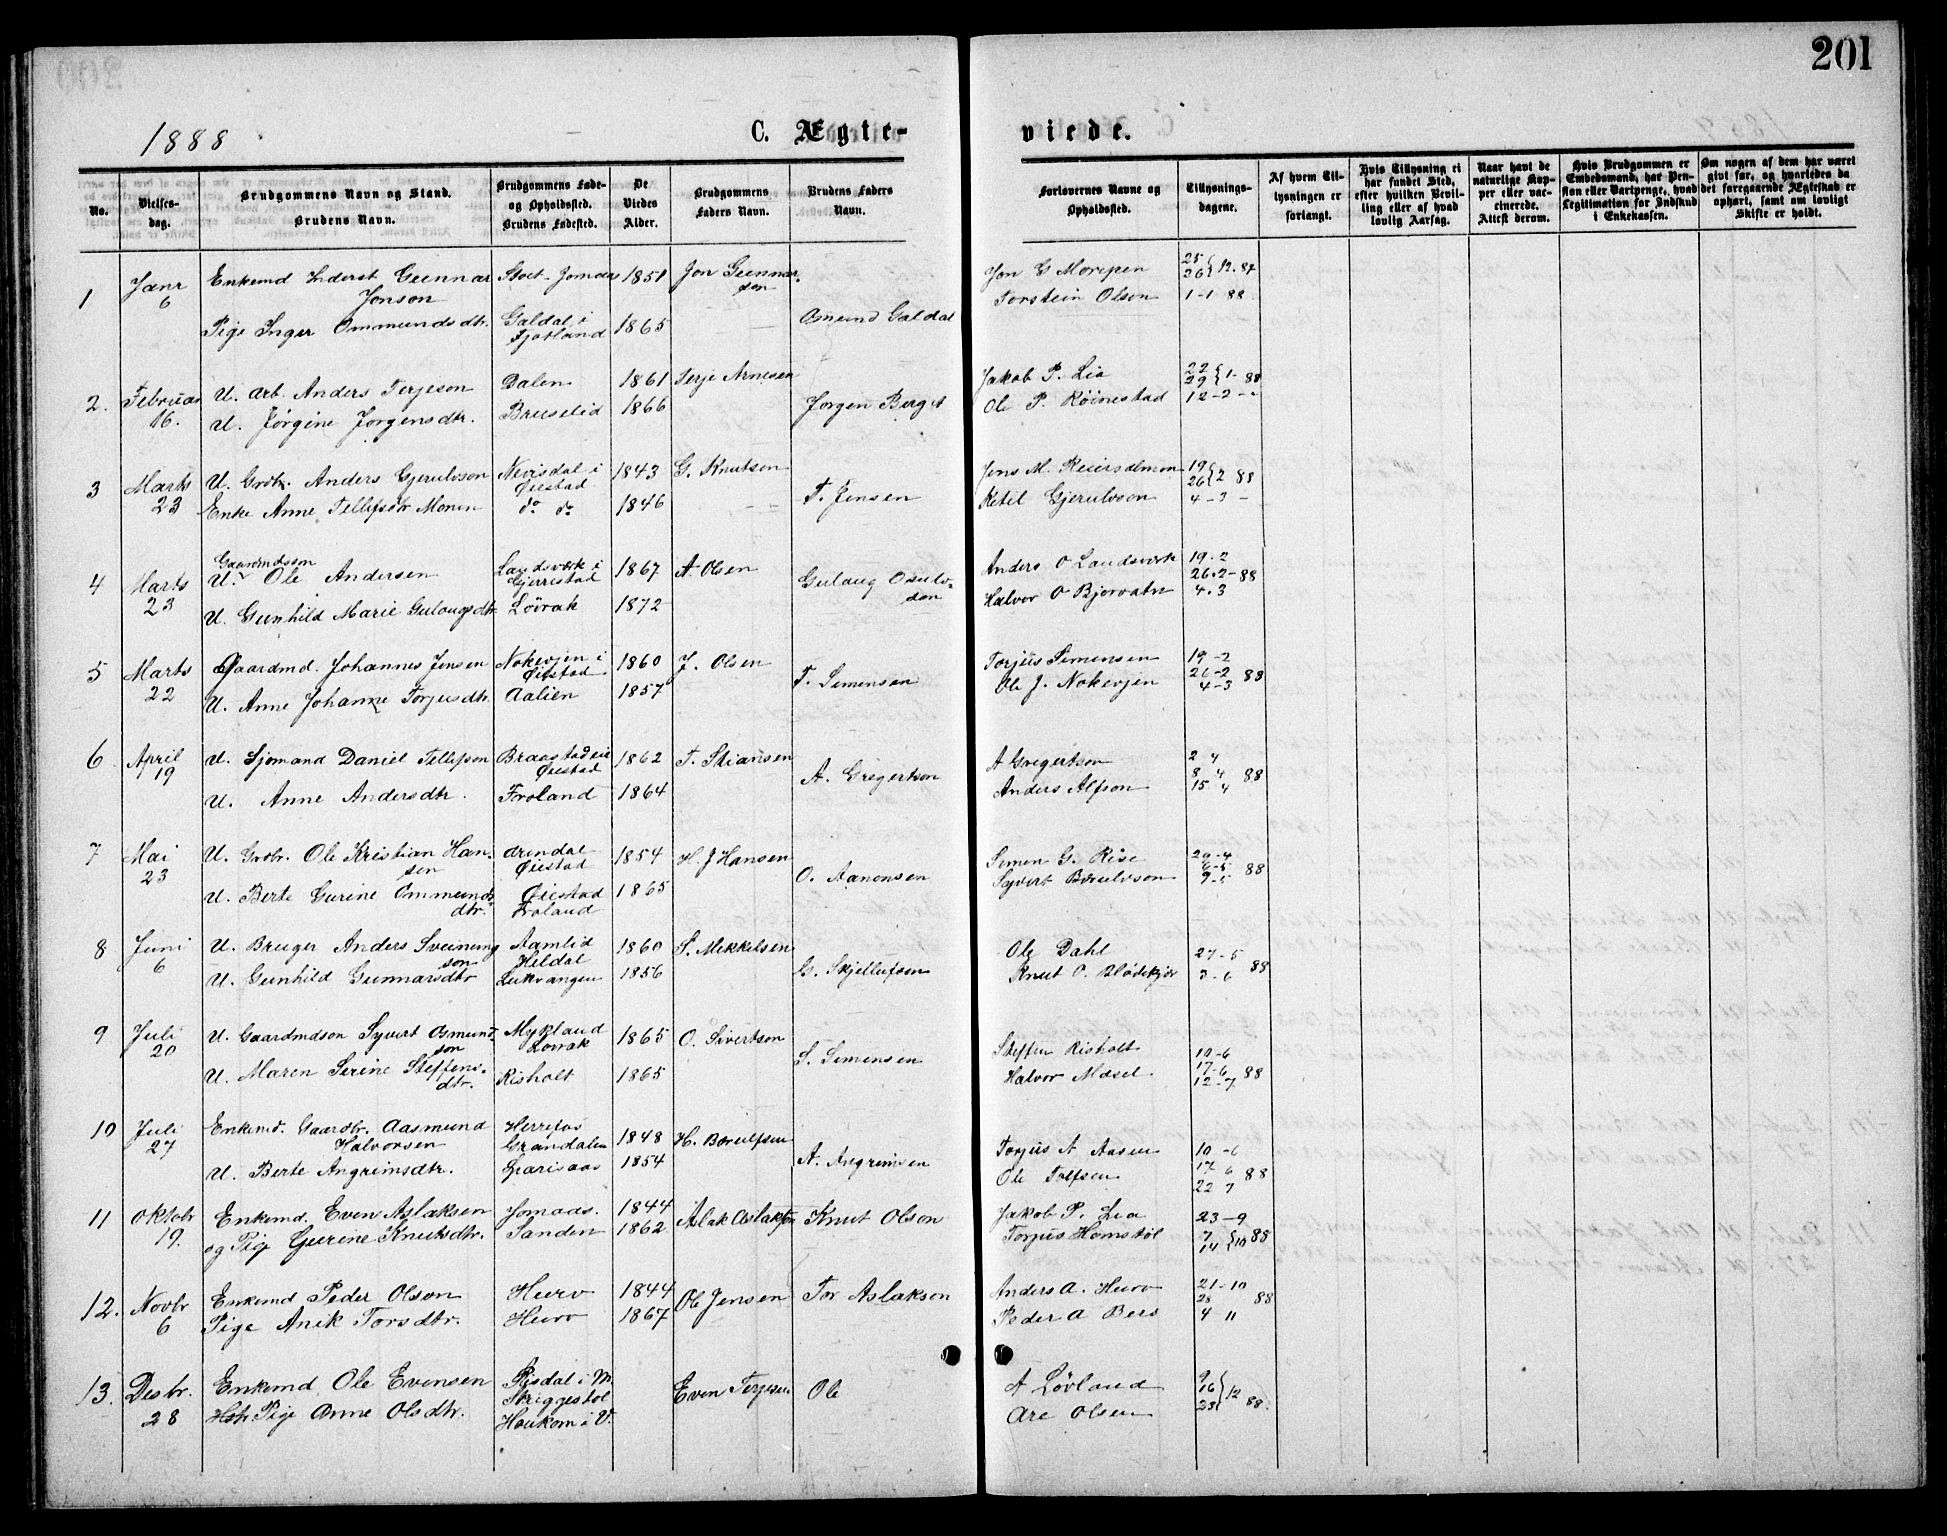 201
1888
C. Ægte- viede.
No.
Vielses-dag.
Brudgommens Navn og Stand.
Brudens Navn.
Brudgommens Føde- og Opholdsted.
Brudens Fødested.
De Viedes Alder.
Brudgommens Faders Navn.
Brudens Faders Navn.
Forlovernes Navne og Opholdsted.
Tillysnings-dagene.
Af hvem Til-lysningen er forlangt.
Hvis Tillysning ei har fundet Sted, efter hvilken Bevil-ling eller af hvad lovlig Aarsag.
Naar havt de naturlige Kop-per eller vac-cinerede. Attest derom.
Hvis Brudgommen er Embedsmand, har Pen-sion eller Vartpenge, hvad Legitimation for Indskud i Enkekassen.
Om nogen af dem har været givt før, og hvorledes da det foregaaende Ægteskab er ophørt, samt om lovligt Skifte er holdt.
1 Janr 6 Enkemd Inderst Gunnar Jonson 1851 Jon Gunnarson Jon G Morepen 12. 87
Pige Inger Ommundsdtr. Galdal i Fjotland 1865 Osmund Galdal Torstein Olson 1-1 88
2. Februar 16. U. Arb. Anders Terjeson Dalen 1861 Terje Arnesen Jakob P. Lia 22 29 } 1- 88
U. Jørgine Jørgensdtr. Bruselid 1866 Jørgen Berget Ole P. Røinestad 12-2 -
3 Marts 23 U. Grdbr. Anders Gjerulvson Nevisdal i Øiestad 1843 G. Knutsen Jens M. 19 26 } 2 88
Enke Anne Tellefsdtr Monen do do 1846 T. Jensen Ketil Gjerulvson 4-3 -
4 Marts 23 Gaardmdsøn U. Ole Andersen Landsværk i Gjerrestad 1867 A. Olsen Anders O Landsværk 19-2 26.2-88
U. Gunhild Marie Gulaugsdtr Løvrak 1872 Gulaug Osulvson Halvor O Bjorvatn 4.3
5 Marts 22 Gaardmd. Johannes Jensen Nokevjen i Øiestad 1860 J. Olsen Torjus Simensen 19-2 26-2 88
U. Anne Johanne Torjusdtr. Aalien 1857 T. Simensen Ole J. Nokevjen 4-3
6 April 19 U. Sjømand Daniel Tellefson Braastad Øiestad 1862 T. Stiansen A Gregertson 2 4 8 4 88
U. Anne Andersdtr. Froland 1864 A. Gregertson Anders Alfson 15 4
7 Mai 23 U. Grdbr. Ole Kristian Hansen Arendal Øiestad 1854 H. J Hansen Simen G. Rise 6-5 88
U. Berte Gurine Ommundsdtr. Øiestad Froland 1865 O. Aanonsen Syvert 9-5
8 Juni 6 U. Bruger Anders Sveinungson Aamlid Hildal 1860 S. Mekkelsen Ole Dahl 27-5
U. Gunhild Gunnarsdtr Lukvangen 1856 G. Skjellufsen Knut O. 3-6 88
9 Juli 20 U. Gaardmdson Syvert Osmundson Mykland Lovrak 1865 O. Sivertson Steffen Risholt 10-6 17-6
U. Maren Serine Steffensdtr. Risholt 1865 S. Simensen Halvor Mæsel 12-7 88
10 Juli 27 Enkemd. Gaardbr. Aasmund Halvorsen Herrefos Grandalen 1848 H. Torjus A Aasen 10-6 17 6
U. Berte Angrimsdtr. 1854 A. Angrimsen Ole Tolfsen 22 7 88
11 Oktobr 19. Enkemd. Even Aslaksen Jomaas. 1844 Aslak Aslakson Knut Olson Jakob P. Lia 23-9
og Pig Gurine Knutsdtr. Sanden 1862 Torjus Homstøl 7 14 } 10 88
12. Novbr 6 Enkemd Peder Olson Hurv 1844 Ole Jensen Tor Aslakson Anders A. Hurv 21-10 28
Pige Anik Torsdtr. Hurv 1867 Peder A Berg 4 11 88
13. Desbr. 28 Enkemd Ole Evensen Risdal i M. Even Terjesen Ole A Løvland 9 16 } 12 88.
Pige Anne Olsdtr. Skriggestøl Haukom i V. Are Olsen 23